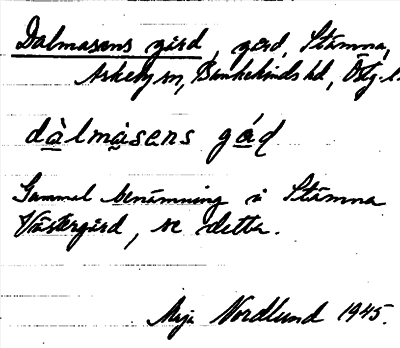 Dalmasens gärd, gärd, Stämna,
Askeby sn, Bankekinds hd, Östg.l.
dàlmàsens gáɖ
Gammal benämning i Stämna
Västergärd, se detta.
Nordlund 1945.